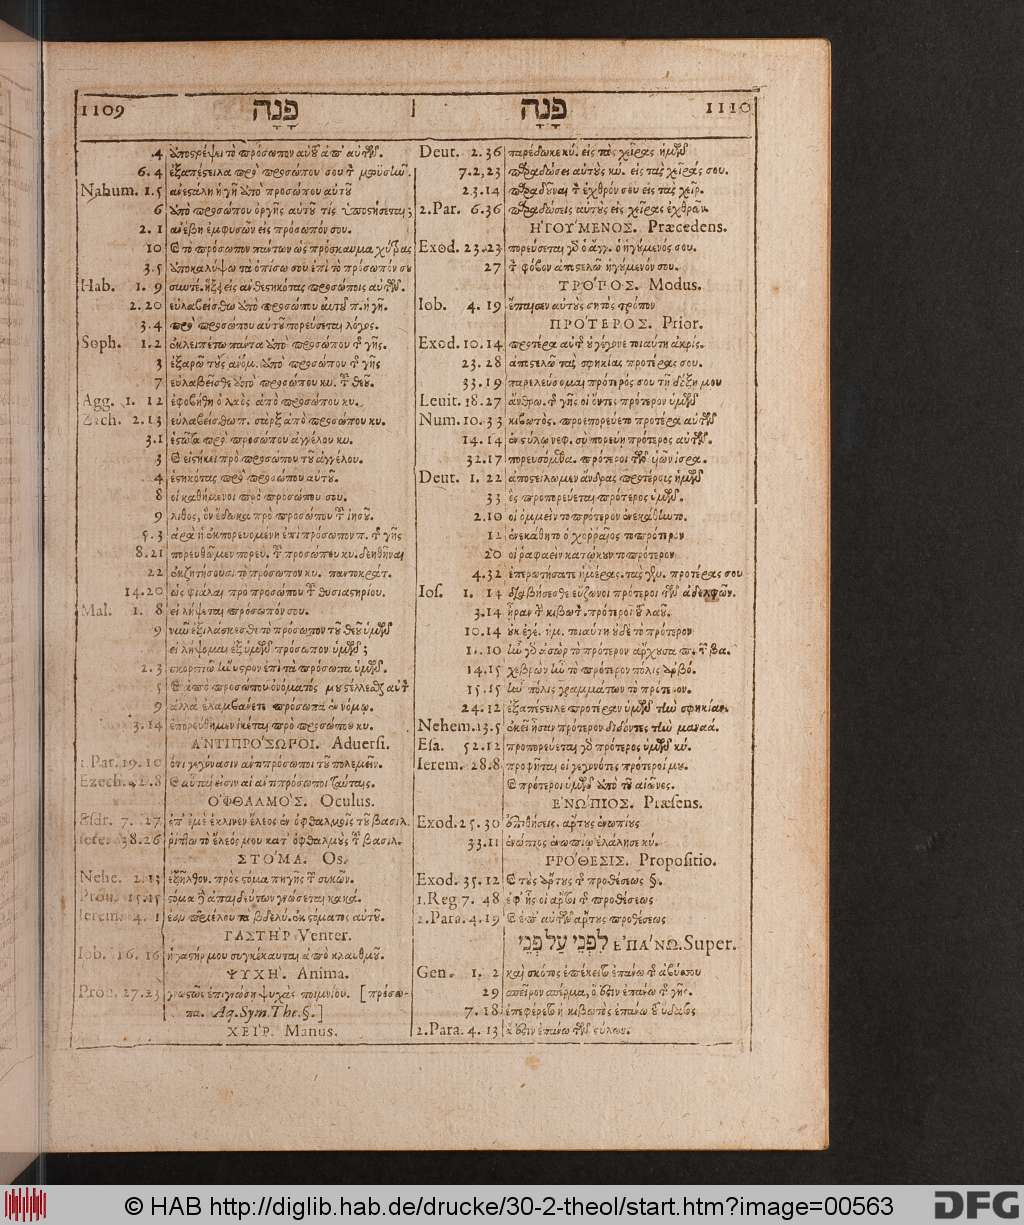 1109 פָּנָה
.4 ἀποστρέψει τὸ πρόσωπον αὐτοῦ ἀπ' αὐτῶν.
6. 4 ἐξαπέστειλα πρὸ προσώπου σου τ̃
Nahum. 1. 5 ἀνεστάλη ἡ γῆ ἀπὸ προσώπου αὐτοῦ
6 ἀπὸ προσώπου ὀργῆς αὐτοῦ τίς ὑποστήσεται;
2. 1 ἀνέβη ἐμφυσῶν εἰς πρόσωπόν σου.
10 καὶ τὸ πρόσωπον πάντων ὡς πρόσκαυμα χύτρας
3. 5 ἀποκαλύψω τὰ ὀπίσω σου ἐπὶ τὸ πρόσωπόν σου
Hab. 1. 9
2. 20 εὐλαβείσθω ἀπὸ προσώπου αὐτοῦ π. ἡ γῆ.
3. 4 πρὸ προσώπου αὐτοῦ πορεύσεται λόγος.
Soph. 1. 2 ἐκλειπέτω πάντα ἀπὸ προσώπου τ̃ γῆς.
3 ἐξαρῶ τοὺς ἀνόμ. ἀπὸ προσώπου τ̃ γῆς
7 εὐλαβεῖσθε ἀπὸ προσώπου κυ. τ̃ θεοῦ.
Agg. 1. 12 ἐφοβήθη ὁ λαὸς ἀπὸ προσώπου κυ.
Zach. 2. 13 εὐλαβείσθω π. σὰρξ ἀπὸ προσώπου κυ.
3. 1 ἑστῶτα πρὸ προσώπου ἀγγέλου κυ.
3 καὶ εἱστήκει πρὸ προσώπου τοῦ ἀγγέλου.
4 ἑστηκότας πρὸ προσώπου αὐτοῦ.
8 οἱ καθήμενοι πρὸ προσώπου σου.
9 λίθος, ὃν ἔδωκα πρὸ προσώπου τ̃ ἰησοῦ.
5. 3 ἀρὰ ἡ ἐκπορευομένη ἐπὶ πρόσωπον π. τ̃ γῆς
8. 21 πορευθῶμεν πορευ. τ̃ προσώπου κυ. δεηθῆναι
22 ἐκζητήσουσι τὸ πρόσωπον κυ. παντοκράτ.
14. 20 ὡς φιάλαι πρὸ προσώπου τ̃ θυσιαστηρίου.
Mal. 1. 8 εἰ λήψεται πρόσωπόν σου.
9 νῦν ἐξιλάσκεσθε τὸ πρόσωπον τοῦ θεοῦ ὑμῶν
εἰ λήψομαι ἐξ ὑμῶν πρόσωπον ὑμῶν;
2. 3 σκορπιῶ ἔνυστρον ἐπὶ τὰ πρόσωπα ὑμῶν.
5 καὶ ἀπὸ προσώπου ὀνόματός μου στέλλεσθαι αὐτ̃
9 ἀλλὰ ἐλαμβάνετε πρόσωπα ἐν νόμῳ.
3. 14 ἐπορεύθημεν ἱκέται πρὸ προσώπου κυ.
ΑΝΤΙΠΡΟ'ΣΩΠΟΙ. Aduersi.
1. Par. 19. 10 ὅτι γεγόνασιν ἀντιπρόσωποι τοῦ πολεμεῖν.
Ezech. 42. 8 καὶ αὗται εἰσὶν αἱ ἀντιπρόσωποι ταύταις.
Ο'ΦΘΑΛΜΟ'Σ. Oculus.
Esdr. 7. 27 ἐπ' ἐμὲ ἔκλινεν ἔλεος ἐν ὀφθαλμοῖς τοῦ βασιλ.
Iere. 38. 26 ῥίπτω τὸ ἔλεός μου κατ' ὀφθαλμοὺς τ̃ βασιλ.
ΣΤΟ'ΜΑ. Os.
Nehe. 2. 13 ἐξῆλθον. πρὸς στόμα πηγῆς τ̃ συκῶν.
Prou. 15. 15
Ierem. 4. 1
ΓΑΣΤΗ'Ρ. Venter.
Iob. 16. 16 ἡ γαστήρ μου συγκέκαυται ἀπὸ κλαυθμοῦ.
ΨΥΧΗ'. Anima.
Prou. 27. 23 γνωστῶς ἐπιγνώσῃ ψυχὰς ποιμνίου. [πρόσω-
πα. Aq. Sym. The. §.]
ΧΕΙ'Ρ. Manus.
פָּנָה 1110
Deut. 2. 36 παρέδωκε κύ. εἰς τὰς χεῖρας ἡμῶν
7. 2, 23 παραδώσει αὐτοὺς κύ. εἰς τὰς χεῖράς σου.
23. 14 παραδοῦναι τ̃ ἐχθρόν σου εἰς τὰς χεῖρ.
2. Par. 6. 36 παραδώσεις αὐτοὺς εἰς χεῖρας ἐχθρῶν.
Η'ΓΟΥ'ΜΕΝΟΣ. Præcedens.
Exod. 23. 23 πορεύσεται γὰρ ὁ ἄγγ. ὁ ἡγούμενός σου.
27 τ̃ φόβον ἀποστελῶ ἡγούμενόν σου.
ΤΡΟ'ΠΟΣ. Modus.
Iob. 4. 19 ἔπαισεν αὐτοὺς σητὸς τρόπον
ΠΡΟ'ΤΕΡΟΣ. Prior.
Exod. 10. 14 προτέρα αὐτ̃ οὐ γέγονε τοιαύτη ἀκρίς.
23. 28 ἀποστελῶ τὰς σφηκίας προτέρας σου.
33. 19 παρελεύσομαι πρότερός σου τῇ δόξῃ μου
Leuit. 18. 27 ἄνθρω. τ̃ γῆς οἱ ὄντες πρότερον ὑμῶν
Num. 10. 33 κιβωτὸς. προεπορεύετο προτέρα αὐτῶν
14. 14 ἐν στύλῳ νεφ. σὺ πορεύῃ πρότερος αὐτῶν.
32. 17 πορευσόμεθα. πρότεροι τῶν υἱῶν ἰσρα.
Deut. 1. 22 ἀποστείλωμεν ἄνδρας προτέρους ἡμῶν
33 ὃς προπορεύεται πρότερος ὑμῶν.
2. 10 οἱ ὀμμεὶν τὸ πρότερον ἐνεκάθιντο.
12 ἐνεκάθητο ὁ χορραῖος τὸ πρότερον
20 οἱ ῥαφαεὶν κατῴκουν τὸ πρότερον
4. 32 ἐπερωτήσατε ἡμέρας. τὰς γεν. προτέρας σου
Ios. 1. 14 διαβήσεσθε εὔζωνοι πρότεροι τῶν ἀδελφῶν.
3. 14 ἦραν τ̃ κιβωτ. πρότεροι τοῦ λαοῦ.
10. 14 οὐκ ἐγέ. ἡμ. τοιαύτη οὐδὲ τὸ πρότερον
11. 10 ἦν γὰρ ἀσὼρ τὸ πρότερον ἄρχουσα π. τ̃ βα.
14. 15 χεβρὼν ἦν τὸ πρότερον πόλις ἀρβό.
15. 15 ἦν πόλις γραμμάτων τὸ πρότερον.
24. 12 ἐξαπέστειλε προτέραν ὑμῶν τὴν σφηκίαν.
Nehem. 13. 5 ἐκεῖ ἦσαν πρότερον διδόντες τὴν μαναά.
Esa. 52. 12 προπορεύεται γὰρ πρότερος ὑμῶν κύ.
Ierem. 28. 8 προφῆται οἱ γεγονότες πρότεροί μου.
καὶ πρότεροι ὑμῶν ἀπὸ τοῦ αἰῶνος.
Ε'ΝΩ'ΠΙΟΣ. Præsens.
Exod. 25. 30 ἐπιθήσεις. ἄρτους ἐνωπίους
33. 11 ἐνώπιος ἐνωπίῳ ἐλάλησε κύ.
ΠΡΟ'ΘΕΣΙΣ. Propositio.
Exod. 35. 12 καὶ τοὺς ἄρτους τ̃ προθέσεως §.
1. Reg 7. 48 ἐφ' ἧς οἱ ἄρτοι τ̃ προθέσεως
2. Para. 4. 19 καὶ ἐπ' αὐτῶν ἄρτους προθέσεως
לִפְנֵי עַל פְּנֵי Ε'ΠΑ'ΝΩ. Super.
Gen. 1. 2 καὶ σκότος ἐπέκειτο ἐπάνω τ̃ ἀβύσσου
29 σπεῖρον σπέρμα, ὅ ἐστιν ἐπάνω τ̃ γῆς.
7. 18 ἐπεφέρετο ἡ κιβωτὸς ἐπάνω τοῦ ὕδατος
2. Para. 4. 13 ἅ ἐστιν ἐπάνω τῶν στύλων.
© HAB http://diglib.hab.de/drucke/30-2-theol/start.htm?image=00563
DFG